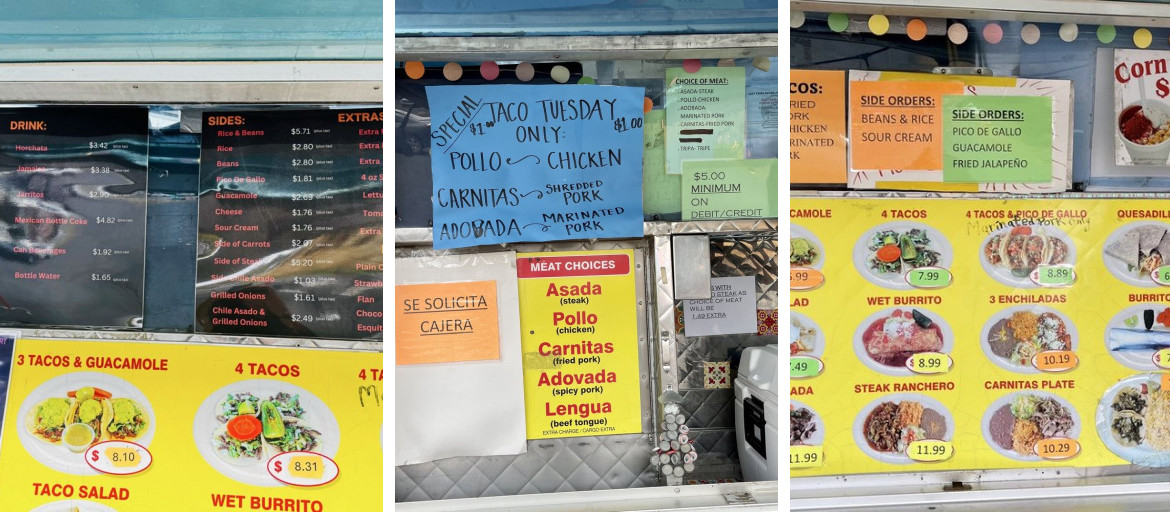 DRINK:
Horchata $3.42
Jamaica $3.38
Jarritos $2.90
Mexican Bottle Coke $4.82
Can Beverages $1.92
Bottle Water $1.65
SIDES:
Rice & Beans $5.71
Rice $2.80
Beans $2.80
Pico De Gallo $1.81
Guacamole $2.69
Cheese $1.76
Sour Cream $1.76
Side of Carrots
Side of $5.20
Side Chile Asado
Grilled Onions $1.61
Chile Asado & $2.49
Grilled Onions
EXTRAS
Extra
Extra
Extra
4 oz S
Lettu
Toma
Sour
Plain C
Strawb
Flan
Choco
Esquit
3 TACOS & GUACAMOLE
$ 8.10
4 TACOS
$ 8.31
4 TA
TACO SALAD
WET BURRITO
SPECIAL
$1.00 TACO TUESDAY
ONLY: $1.00
POLLO CHICKEN
CARNITAS SHREDDED
PORK
ADOBADA MARINATED
PORK
CHOICE OF MEAT:
ASADA-STEAK
POLLO-CHICKEN
ADOBADA
MARINATED PORK
CARNITAS-FRIED PORK
TRIPA- TRIPE
$5.00
MINIMUM
ON
DEBIT/CREDIT
SE SOLICITA
CAJERA
MEAT CHOICES
Asada
(steak)
Pollo
(chicken)
Carnitas
(fried pork)
Adovada
(spicy pork)
Lengua
(beef tongue)
EXTRA CHARGE / CARGO EXTRA
WITH
STEAK AS
CHOICE OF MEAT
WILL BE
1.49 EXTRA
COS:
RIED
ORK
HICKEN
ARINATED
RK
SIDE ORDERS:
BEANS & RICE
SOUR CREAM
SIDE ORDERS:
PICO DE GALLO
GUACAMOLE
FRIED JALAPEÑO
Corn
S
CAMOLE
6.99
4 TACOS
7.99
4 TACOS & PICO DE GALLO
Marinated Pork only
$ 8.89
QUESADIL
$ 6
LAD
7.49
WET BURRITO
$ 8.99
3 ENCHILADAS
10.19
BURRITO
$ 7
ADA
11.99
STEAK RANCHERO
11.99
CARNITAS PLATE
10.29